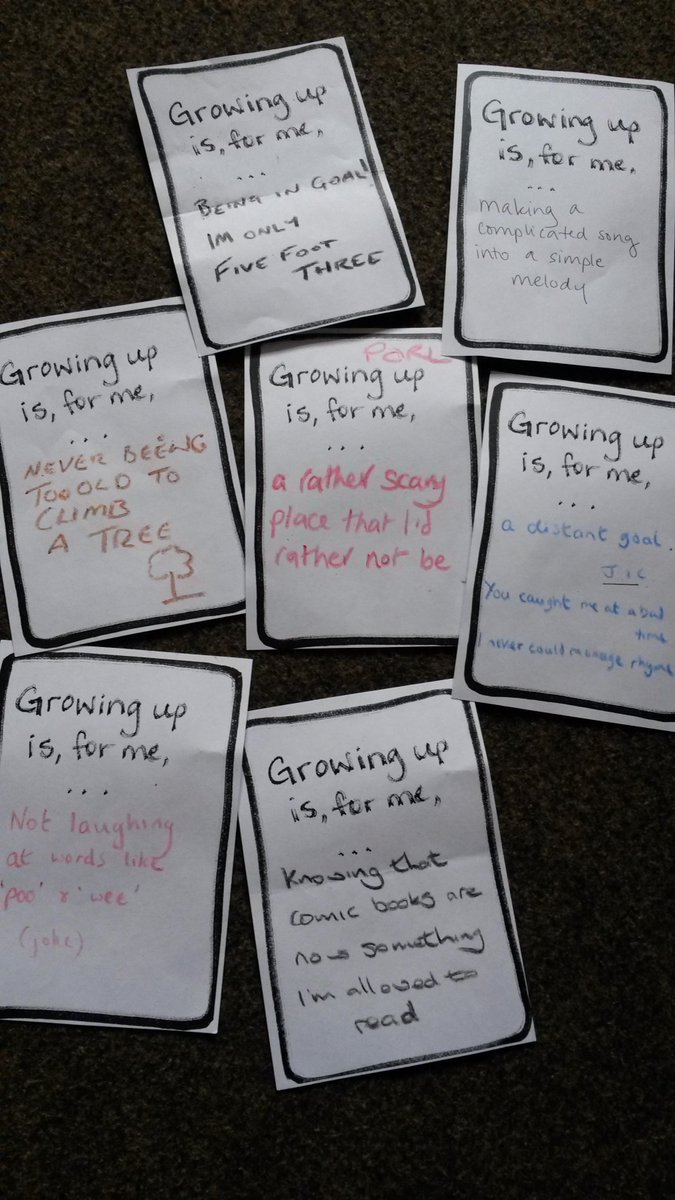 Growing up
is, for me,
...
BEING IN GOAL!
IM ONLY
FIVE FOOT
THREE
Growing up
is, for me,
...
making a
complicated song
into a simple
melody
Growing up
is, for me,
...
NEVER BEEING
TOO OLD TO
CLIMB
A TREE
PORL
Growing up
is, for me,
...
a rather scary
place that I'd
rather not be
Growing up
is, for me,
...
a distant goal.
J.I.C
You caught me at a bad
time
I never could manage rhyme
Growing up
is, for me,
...
Not laughing
at words like
'poo' & 'wee'
(joke)
Growing up
is, for me,
...
Knowing that
comic books are
now something
I'm allowed to
read